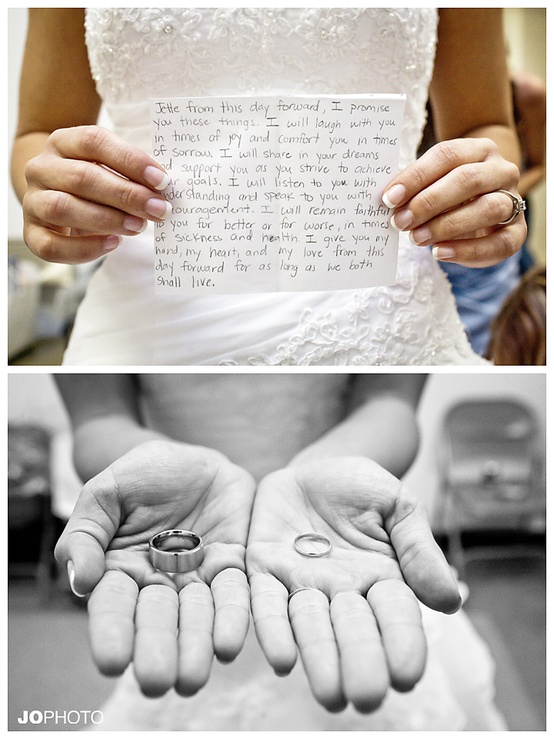 Jette from this day forward, I promise
you these things. I will laugh with you
in times of joy and comfort you in times
of sorrow. I will share in your dreams
support you as you strive to achieve
goals. I will listen to you with
understanding and speak to you with
encouragement. I will remain faithful
to you for better or for worse, in times
of sickness and health. I give you my
hand, my heart, and my love from this
day forward for as long as we both
shall live.
JOPHOTO